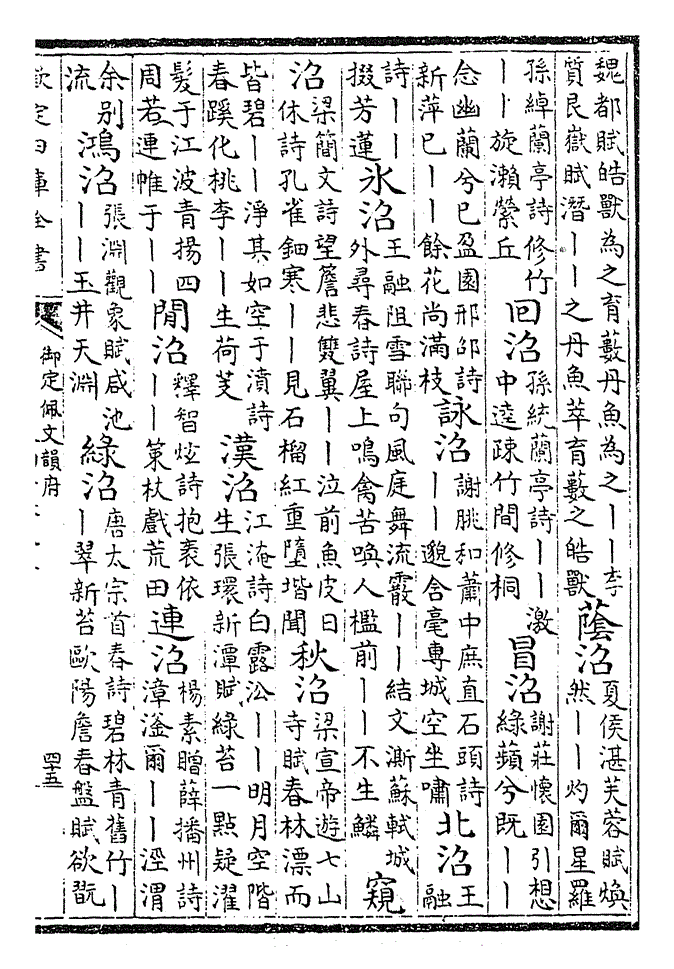 魏都賦皓獸為之育藪丹魚為之丨丨李
質艮嶽賦潛丨丨之丹魚萃育藪之皓獸
蔭沼
夏侯湛芙蓉賦煥
然丨丨灼爾星羅
孫綽蘭亭詩修竹
丨丨旋瀨縈丘
回沼
孫統蘭亭詩丨丨激
中逵疎竹間修桐
冒沼
謝莊懷園引想
綠蘋兮既丨丨
念幽蘭兮已盈園邢邵詩
新萍已丨丨餘花尚滿枝
詠沼
謝朓和蕭中庶直石頭詩
丨丨邈含毫專城空坐嘯
北沼
王
融
詩丨丨
掇芳蓮
氷沼
王融阻雪聯句風庭舞流霰丨丨結文澌蘇軾城
外尋春詩屋上鳴禽苦喚人檻前丨丨不生鱗
窺
沼
梁簡文詩望簷悲雙翼丨丨泣前魚皮日
休詩孔雀鈿寒丨丨見石榴紅重墮堦聞
秋沼
梁宣帝遊七山
寺賦春林漂而
皆碧丨丨淨其如空于濆詩
春蹊化桃李丨丨生荷芰
漢沼
江淹詩白露㳂丨丨明月空階
生張環新潭賦綠苔一點疑濯
髮于江波青揚四
周若連帷于丨丨
閒沼
釋智炫詩抱袠依
丨丨策杖戲荒田
連沼
楊素贈薛播州詩
漳滏爾丨丨涇渭
余別
流
鴻沼
張淵觀象賦咸池
丨丨玉井天淵
綠沼
唐太宗首春詩碧林青舊竹丨
丨翠新苔歐陽詹春盤賦欲翫
欽定四庫全書
御定佩文韻府
四十五